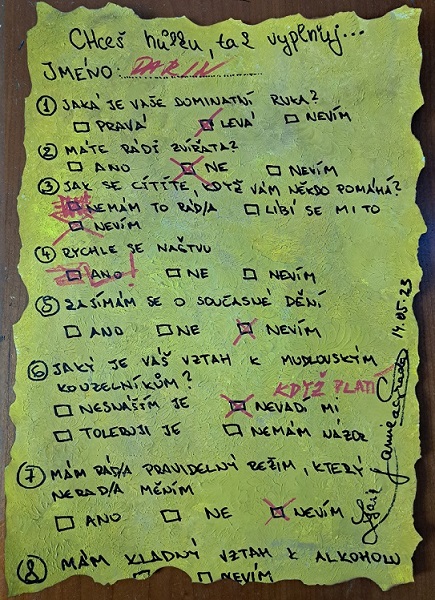 Chceš hůlku, tak vyplňuj...
JMÉNO: DARIN
① JAKÁ JE VAŠE DOMINATNÍ RUKA?
PRAVÁ LEVÁ NEVÍM
② MÁTE RÁDI ZVÍŘATA?
ANO NE NEVÍM
③ JAK SE CÍTÍTE, KDYŽ VÁM NĚKDO POMÁHÁ?
NEMÁM TO RÁD/A LÍBÍ SE MI TO
NEVÍM
④ RYCHLE SE NAŠTVU
ANO! NE NEVÍM
⑤ ZAJÍMÁM SE O SOUČASNÉ DĚNÍ
ANO NE NEVÍM
⑥ JAKÝ JE VÁŠ VZTAH K MUDLOVSKÝM
KOUZELNÍKŮM?
KDYŽ PLATÍ
NESNÁŠÍM JE NEVADÍ MI
TOLERUJI JE NEMÁM NÁZOR
⑦ MÁM RÁD/A PRAVIDELNÝ REŽIM, KTERÝ
NERAD/A MĚNÍM
ANO NE NEVÍM
⑧ MÁM KLADNÝ VZTAH K ALKOHOLU
NEVÍM
14.05.23